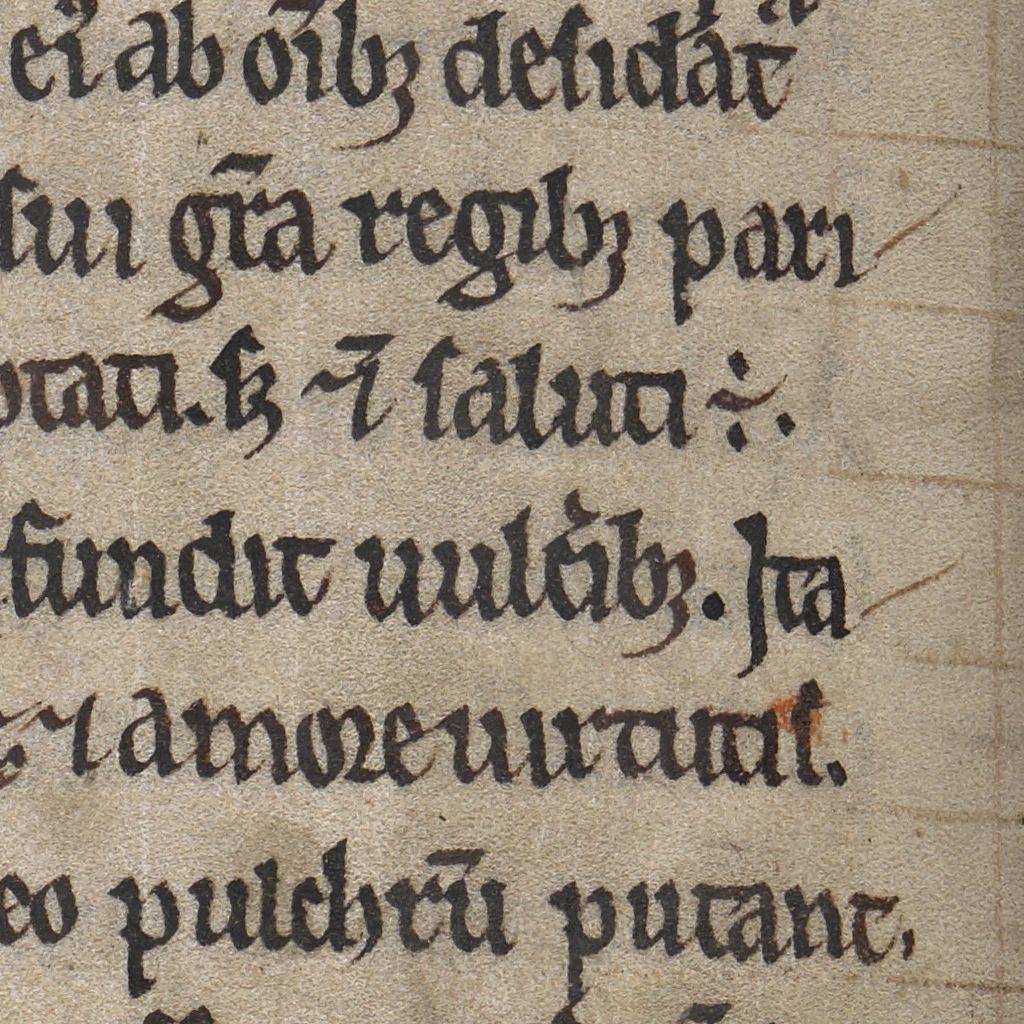 ei⁹ ab oĩbꝫ desid̾at
sui gr̃a regibꝫ pari
otati. sꝫ ⁊ĩ saluti ÷.
fundit uulc̾ibꝫ. Ita
⁊ amore uirtutis.
eo pulchrũ putant.